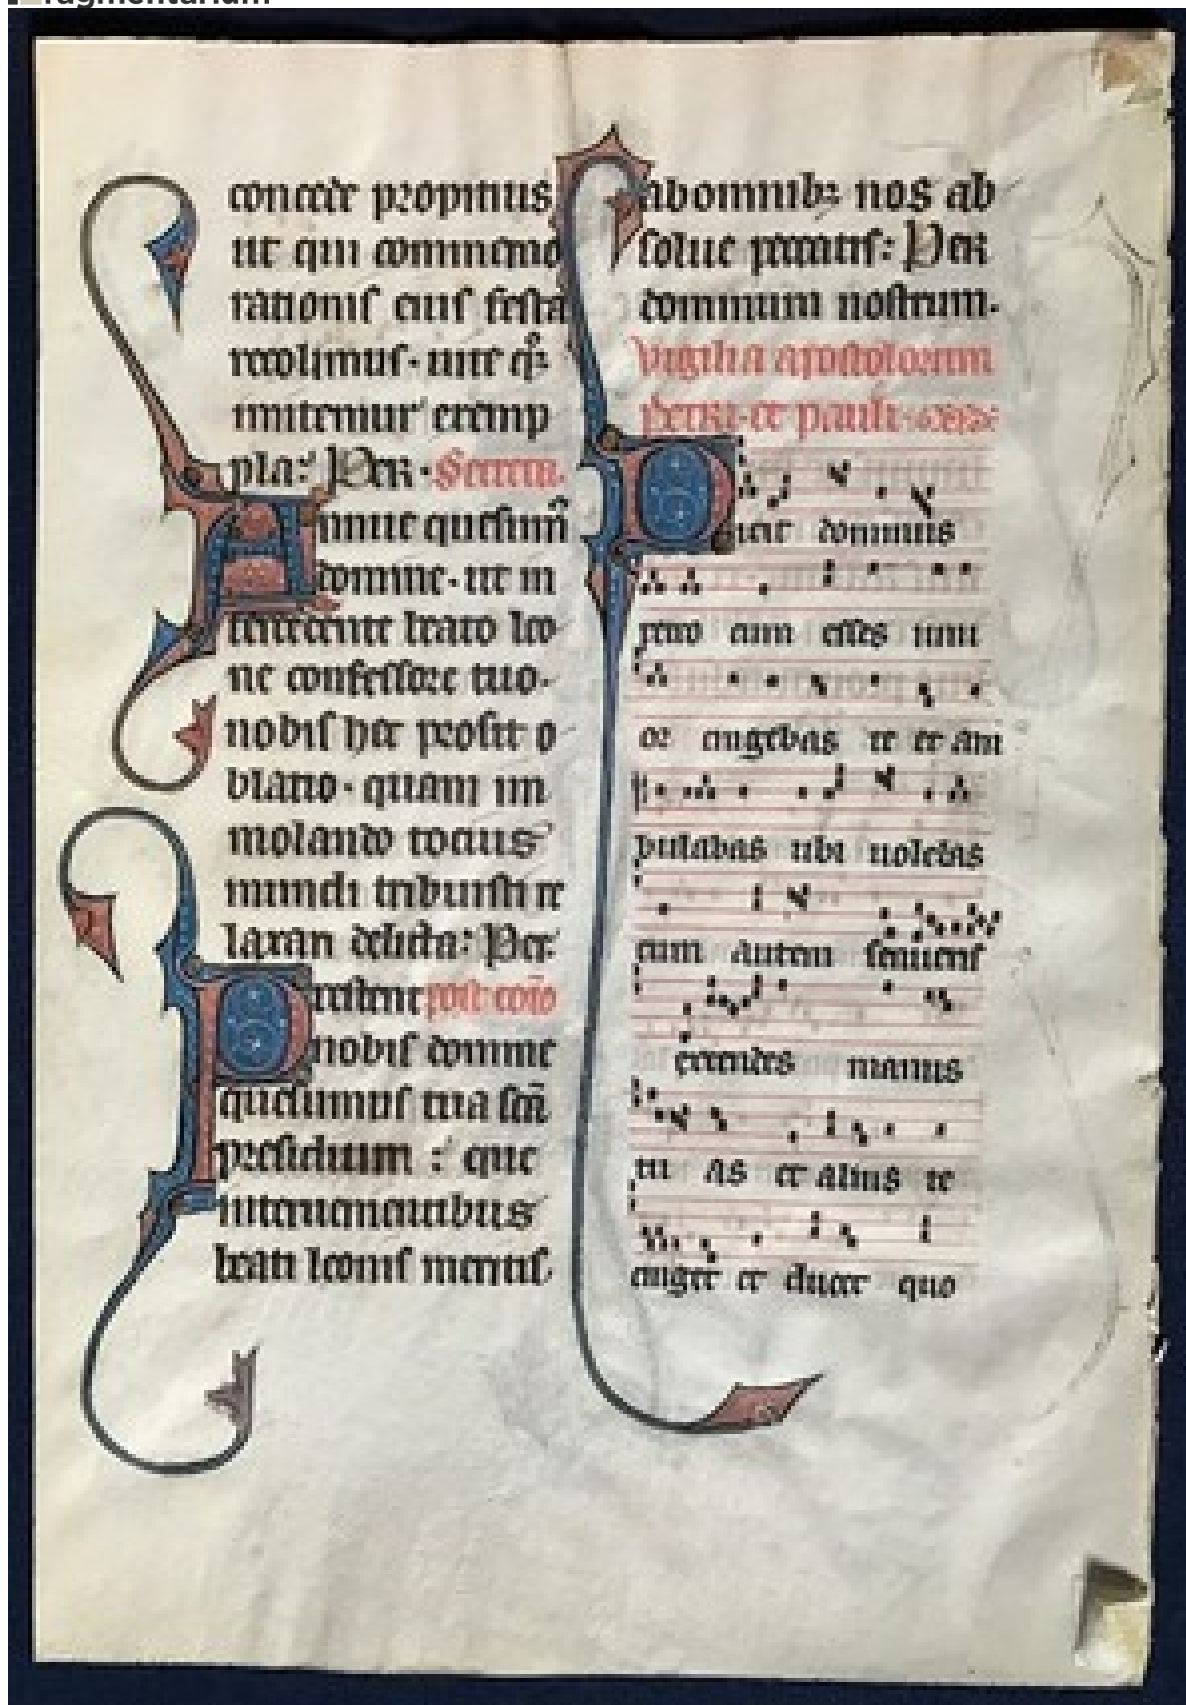 ragmentarium
concede propitius
ut qui commemo
rationis eius festa
recolimus. uite q̄ꝫ
imitemur exemp
pla: Per. Secreta.
Annue quesum̄
domine. ut in
tercedente beato leo
ne confessore tuo.
nobis hec prosit o
blatio. quam im
molando tocius
mundi tribuisti re
laxari delicta: Per
Prestent post com̄
nobis domine
quesumus tua scā
presidium: que
interuenientibus
beati leonis meritis
ab omnibꝫ nos ab
solue peccatis: Per
dominum nostrum.
Vigilia apostolorum
petri. et pauli.
Dicit dominus
petro cum esses iuni
or cingebas te et am
bulabas ubi uolebas
cum autem senueris
extendes manus
tu as et alius te
cinget et ducet quo